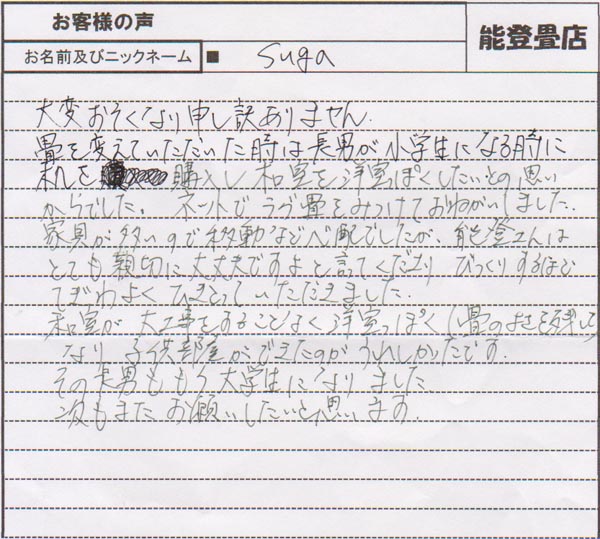 お客様の声
お名前及びニックネーム ■ suga
能登畳店
大変おそくなり申し訳ありません.
畳を変えていただいた時は長男が小学生になる時に
机を 購入し 和室を洋室っぽくしたいとの思い
からでした. ネットで うづ畳をみつけておねがいしました.
家具が多いので移動など心配でしたが、能登さんは
とても親切に大丈夫ですよと言てくださり びっくりするほど
てぎわよく ひきとっていただきました.
和室が大工事をすることなく洋室っぽく(畳のよさを残して)
なり 子供部屋ができたのがうれしかったです.
その長男ももう大学生になりました
次もまたお願いしたいと思います.